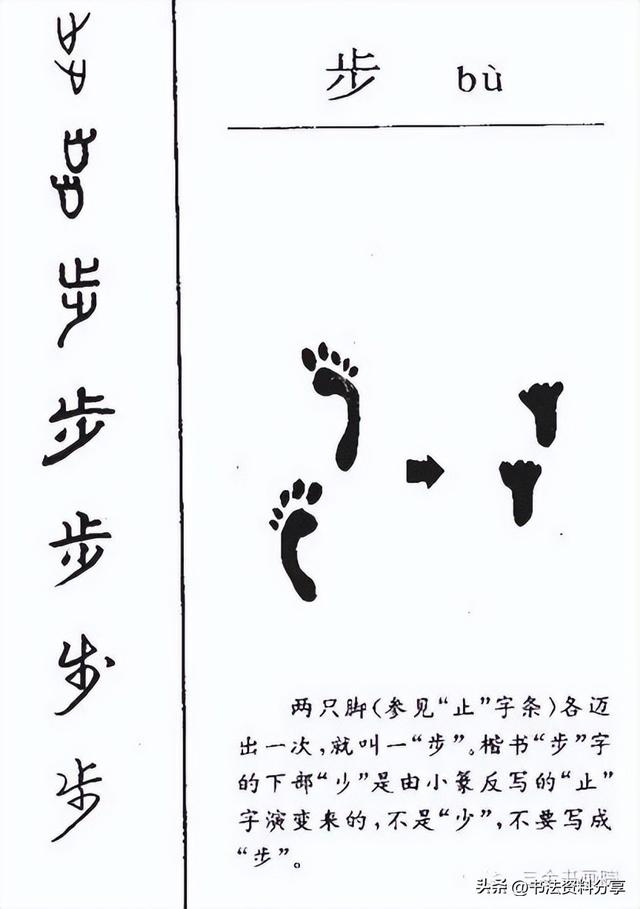 步 bù
步
步
步
步
步
两只脚(参见“止”字条)各迈
出一次,就叫一“步”。楷书“步”字
的下部“少”是由小篆反写的“止”
字演变来的,不是“少”,不要写成
“歩”。
头条 @书法资料分享